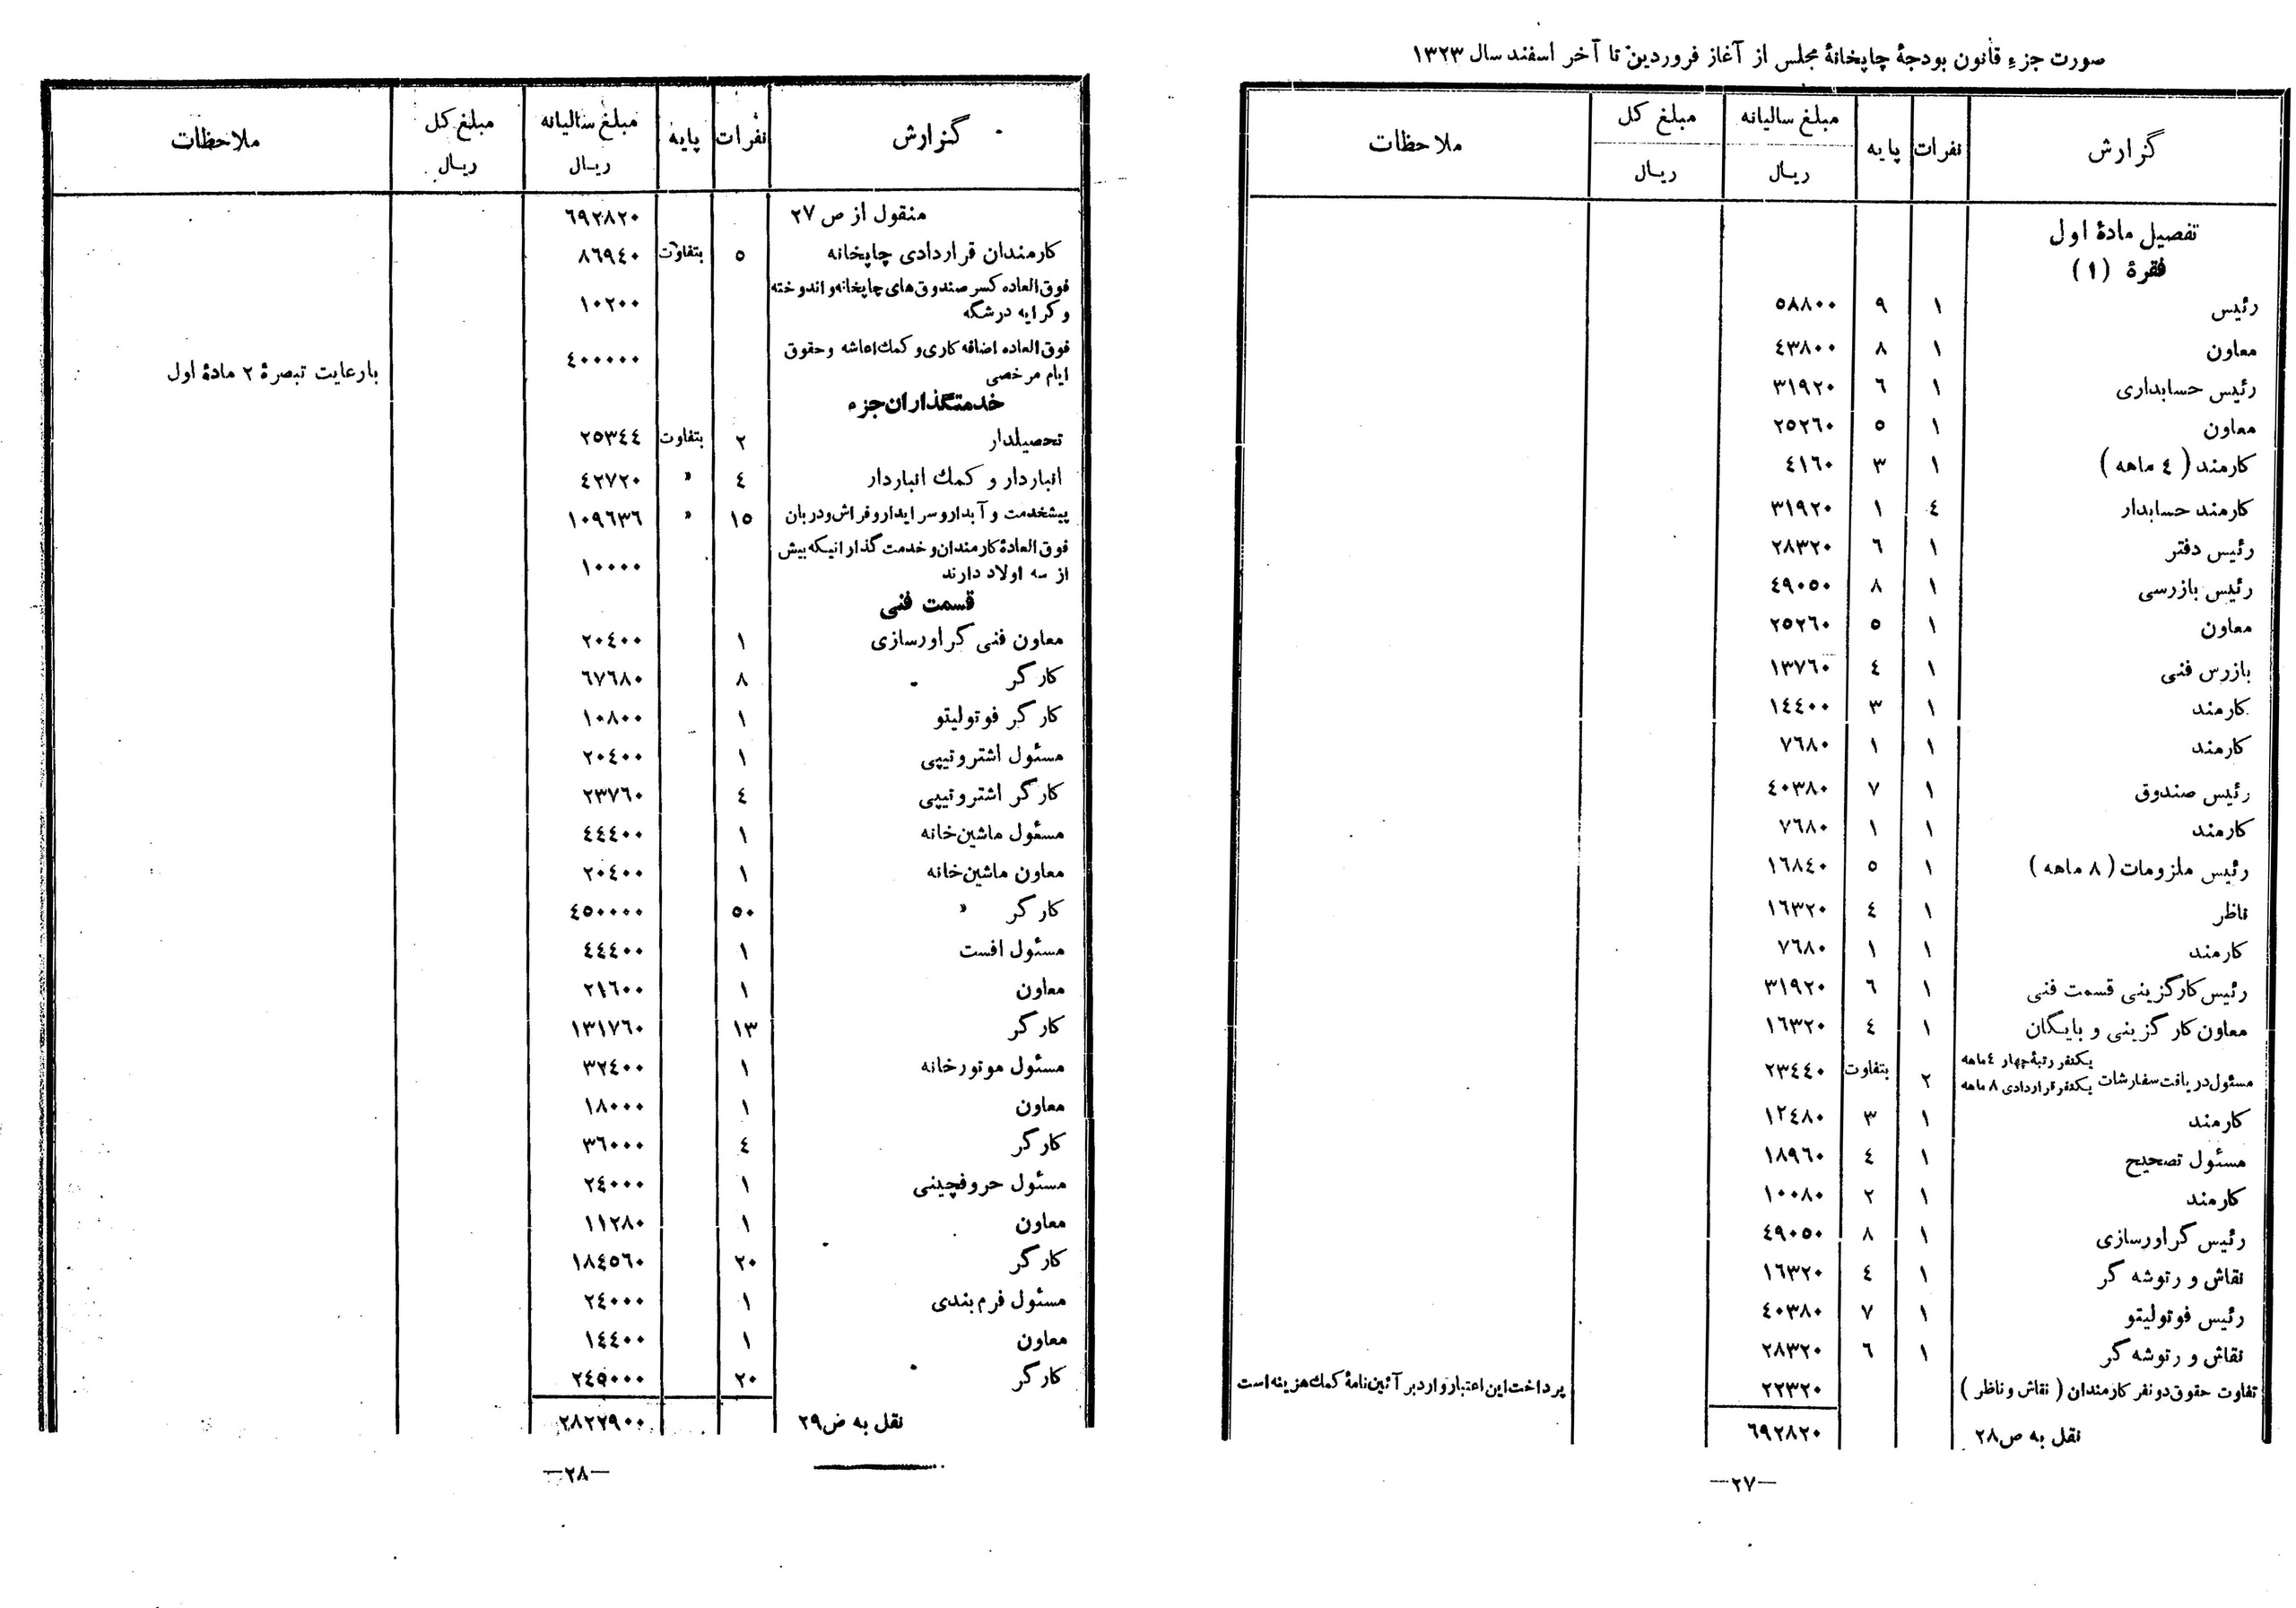 صورت جزء قانون بودجهٔ چاپخانهٔ مجلس از آغاز فروردین تا آخر اسفند سال ۱۳۲۳
گزارش نفرات پایه مبلغ سالیانه ریال مبلغ کل ریال ملاحظات
تفصیل مادهٔ اول
فقرهٔ (۱)
رئیس ۱ ۹ ۵۸۸۰۰
معاون ۱ ۸ ٤۳۸۰۰
رئیس حسابداری ۱ ٦ ۳۱۹۲۰
معاون ۱ ۵ ۲۵۲٦۰
کارمند ( ٤ ماهه ) ۱ ۳ ٤۱٦۰
کارمند حسابدار ٤ ۱ ۳۱۹۲۰
رئیس دفتر ۱ ٦ ۲۸۳۲۰
رئیس بازرسی ۱ ۸ ٤۹۰۵۰
معاون ۱ ۵ ۲۵۲٦۰
بازرس فنی ۱ ٤ ۱۳۷٦۰
کارمند ۱ ۳ ۱٤٤۰۰
کارمند ۱ ۱ ۷٦۸۰
رئیس صندوق ۱ ۷ ٤۰۳۸۰
کارمند ۱ ۱ ۷٦۸۰
رئیس ملزومات ( ۸ ماهه ) ۱ ۵ ۱٦۸٤۰
ناظر ۱ ٤ ۱٦۳۲۰
کارمند ۱ ۱ ۷٦۸۰
رئیس کارگزینی قسمت فنی ۱ ٦ ۳۱۹۲۰
معاون کارگزینی و بایگان ۱ ٤ ۱٦۳۲۰
مسئول دریافت سفارشات یکنفر رتبهٔ چهار ٤ ماهه یکنفر قراردادی ۸ ماهه ۲ بتفاوت ۲۳٤٤۰
کارمند ۱ ۳ ۱۲٤۸۰
مسئول تصحیح ۱ ٤ ۱۸۹٦۰
کارمند ۱ ۲ ۱۰۰۸۰
رئیس گراورسازی ۱ ۸ ٤۹۰۵۰
نقاش و رتوشه گر ۱ ٤ ۱٦۳۲۰
رئیس فوتولیتو ۱ ۷ ٤۰۳۸۰
نقاش و رتوشه گر ۱ ٦ ۲۸۳۲۰
تفاوت حقوق دو نفر کارمندان ( نقاش و ناظر ) ۲۲۳۲۰ پرداخت این اعتبار وارد بر آئین‌نامهٔ کمك هزینه است
نقل به ص ۲۸ ٦۹۲۸۲۰
—۲۷—
گزارش نفرات پایه مبلغ سالیانه ریال مبلغ کل ریال ملاحظات
منقول از ص ۲۷ ٦۹۲۸۲۰
کارمندان قراردادی چاپخانه ۵ بتفاوت ۸٦۹٤۰
فوق‌العاده کسر صندوق‌های چاپخانه و اندوخته
و کرایه درشگه ۱۰۲۰۰
فوق‌العاده اضافه کاری و کمك اعاشه و حقوق
ایام مرخصی ٤۰۰۰۰۰ بارعایت تبصرهٔ ۲ مادهٔ اول
خدمتگذاران جزء
تحصیلدار ۲ بتفاوت ۲۵۳٤٤
انباردار و کمك انباردار ٤ » ٤۲۷۲۰
پیشخدمت و آبدار و سرایدار و فراش و دربان ۱۵ » ۱۰۹٦۳٦
فوق‌العادهٔ کارمندان و خدمت گذارانیکه بیش
از سه اولاد دارند ۱۰۰۰۰
قسمت فنی
معاون فنی گراورسازی ۱ ۲۰٤۰۰
کارگر ۸ ٦۷٦۸۰
کارگر فوتولیتو ۱ ۱۰۸۰۰
مسئول اشتروتیپی ۱ ۲۰٤۰۰
کارگر اشتروتیپی ٤ ۲۳۷٦۰
مسئول ماشین‌خانه ۱ ٤٤٤۰۰
معاون ماشین‌خانه ۱ ۲۰٤۰۰
کارگر » ۵۰ ٤۵۰۰۰۰
مسئول افست ۱ ٤٤٤۰۰
معاون ۱ ۲۱٦۰۰
کارگر ۱۳ ۱۳۱۷٦۰
مسئول موتورخانه ۱ ۳۲٤۰۰
معاون ۱ ۱۸۰۰۰
کارگر ٤ ۳٦۰۰۰
مسئول حروفچینی ۱ ۲٤۰۰۰
معاون ۱ ۱۱۲۸۰
کارگر ۲۰ ۱۸٤۵٦۰
مسئول فرم‌بندی ۱ ۲٤۰۰۰
معاون ۱ ۱٤٤۰۰
کارگر ۲۰ ۲٤۵۰۰۰
نقل به ص ۲۹ ۲۸۲۲۹۰۰
—۲۸—